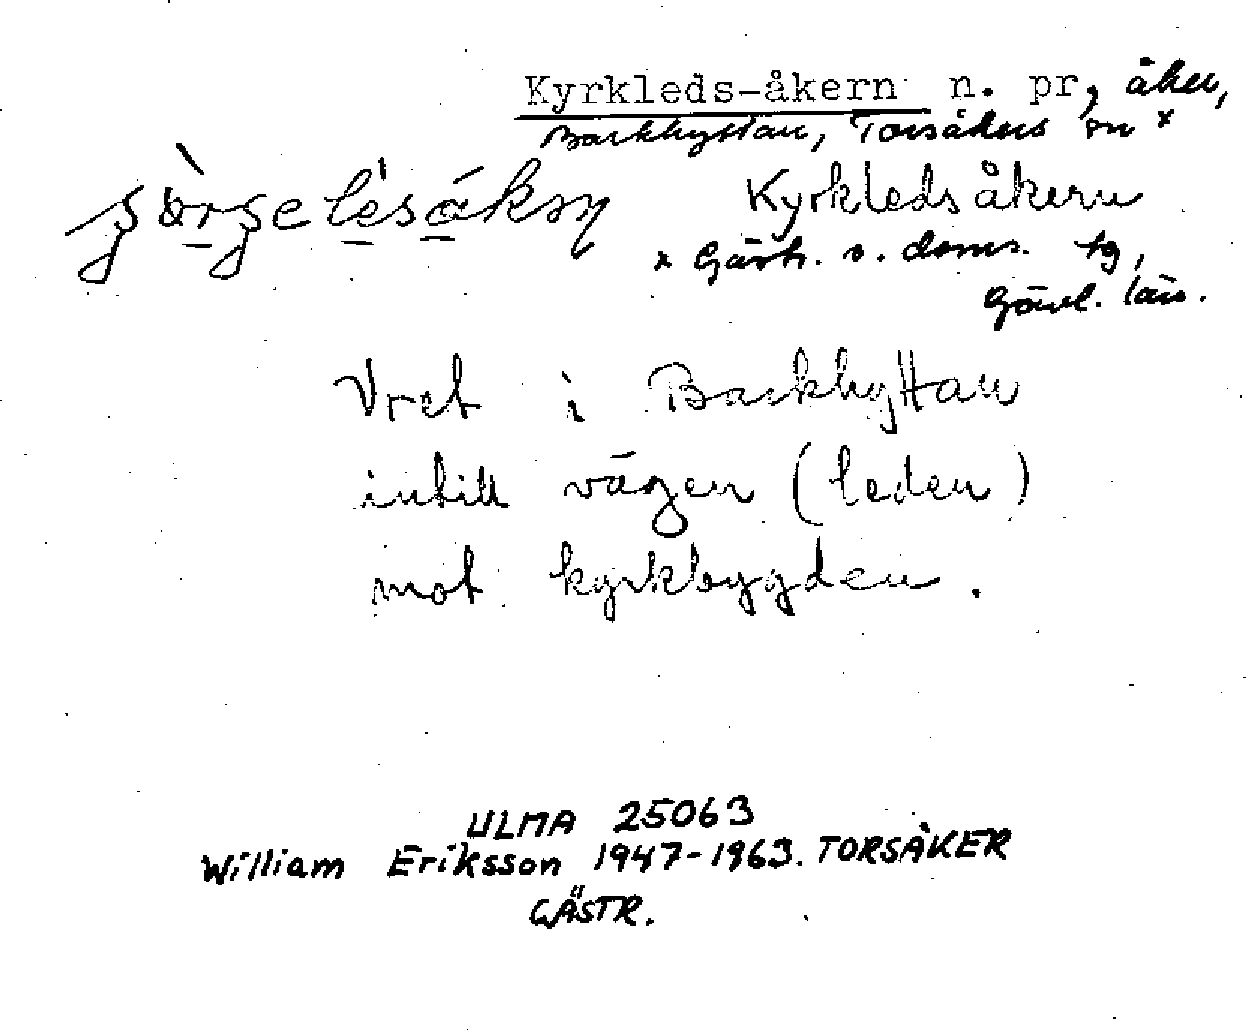 Kyrkleds-åkern n. pr, åker,
Backhyttan, Torsåkers sn x
Kyrkledsåkern
x Gästr. o. doms. tg,
Gävl. län.
Vret i Backhyttan
intill vägen (leden)
mot kyrkbygden.
ULMA 25063
William Eriksson 1947-1963. TORSÅKER
GÄSTR.